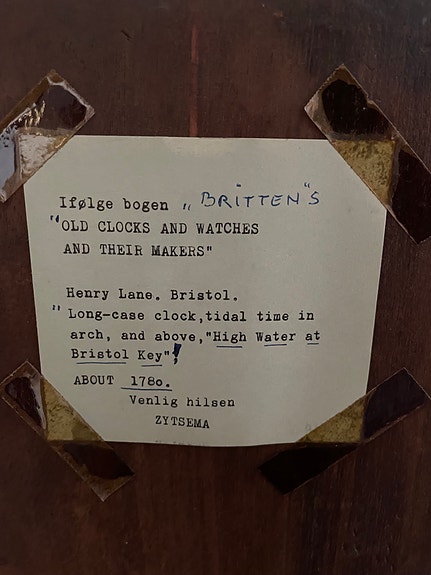 Ifølge bogen „BRITTEN"S
"OLD CLOCKS AND WATCHES
AND THEIR MAKERS"
Henry Lane. Bristol.
"Long-case clock,tidal time in
arch, and above,"High Water at
Bristol Key"!
ABOUT 1780.
Venlig hilsen
ZYTSEMA